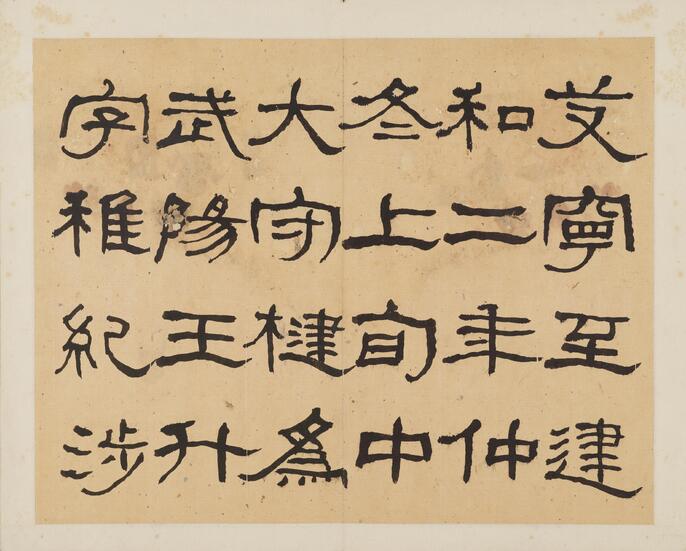 艾寧至建
和二年仲
冬上旬中
大守楗為
武陽王升
字稚紀涉